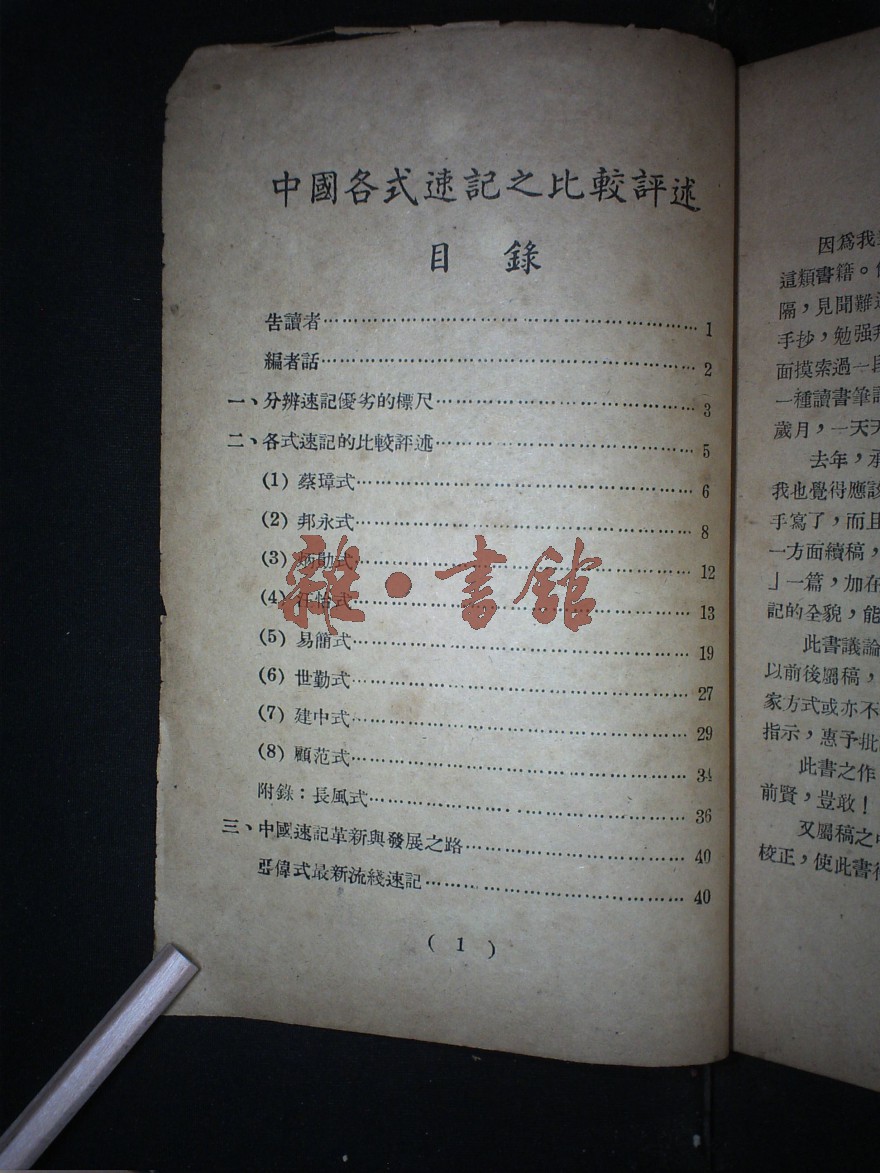 中國各式速記之比較評述
目錄
告讀者 1
編者話 2
一、分辨速記優劣的標尺 3
二、各式速記的比較評述 5
(1) 蔡璋式 6
(2) 邦永式 8
(3) 炳勛式 12
(4) 汪怡式 13
(5) 易簡式 19
(6) 世勤式 27
(7) 建中式 29
(8) 顧范式 34
附錄：長風式 36
三、中國速記革新與發展之路 40
亞偉式最新流綫速記 40
( 1 )
雜·書館
因爲我
這類書籍。
隔，見聞難
手抄，勉强
面摸索過一段
一種讀書筆記
歲月，一天天
去年，承
我也覺得應該
手寫了，而且
一方面續稿，
」一篇，加在
記的全貌，能
此書議論
以前後屬稿，
家方式或亦不
指示，惠予批
此書之作
前賢，豈敢！
又屬稿之
校正，使此書得